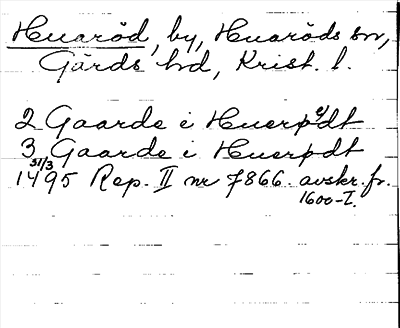 Huaröd, by, Huaröds sn,
Gärds hd, Krist. l.
2 Gaarde i Huerødt
3 Gaarde i Huerødt
31/3
1495 Rep. II nr 7866. avskr. fr.
1600-T.